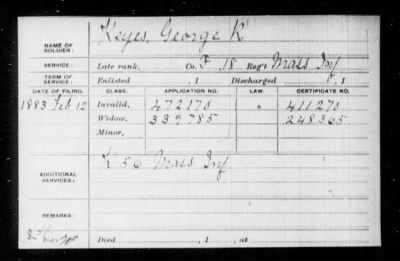 Keyes, George R
NAME OF SOLDIER:
SERVICE: Late rank, Co. F, 18 Reg't Mass Inf
TERM OF SERVICE: Enlisted , 1 Discharged , 1
DATE OF FILING. CLASS. APPLICATION NO. LAW. CERTIFICATE NO.
1883 Feb 12 Invalid, 472170 411270
Widow, 339785 248365
Minor,
K 56 Mass Inf
ADDITIONAL SERVICES:
REMARKS:
Died , 1 , at